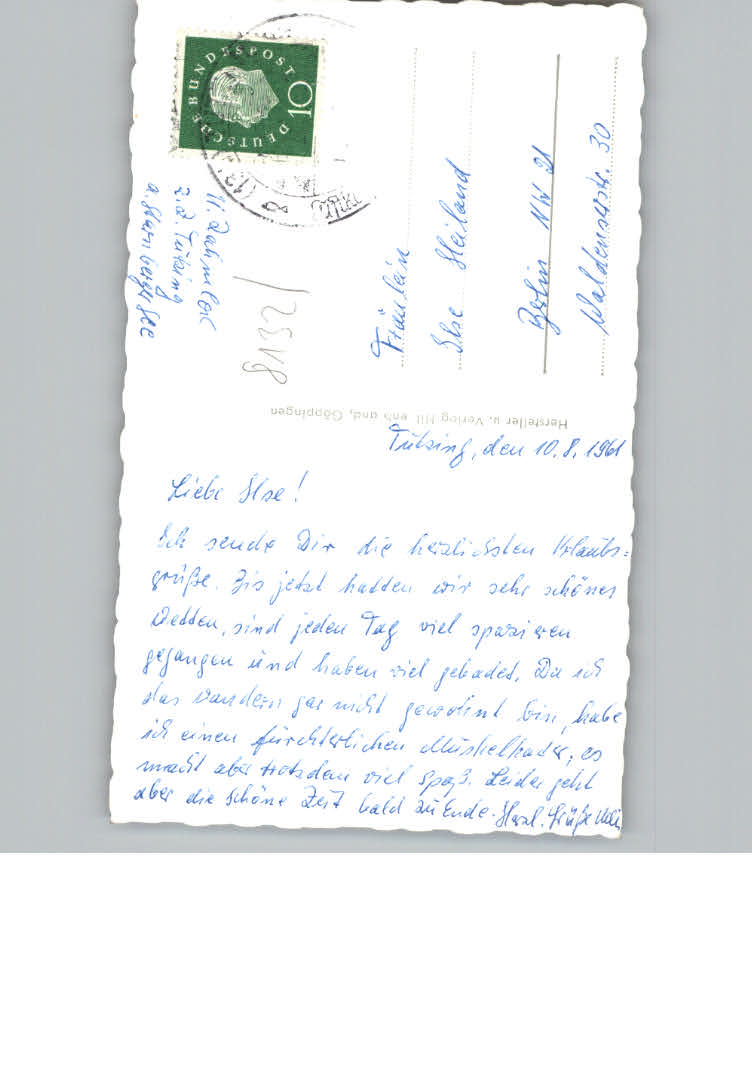 DEUTSCHE BUNDESPOST
10
z.Z. Tutzing
a. Starnberger See
2318
Fräulein
Ilse Heiland
Berlin NW 21
Waldenserstr. 30
Hersteller u. Verlag Göppingen
Tutzing, den 10.8.1961
Liebe Ilse!
Ich sende Dir die herzlichsten Urlaubs=
grüße. Bis jetzt hatten wir sehr schönes
Wetter, sind jeden Tag viel spazieren
gegangen und haben viel gebadet. Da ich
das Wandern gar nicht gewohnt bin, habe
ich einen fürchterlichen Muskelkater, es
macht aber trotzdem viel Spaß. Leider geht
aber die schöne Zeit bald zu Ende. Herzl. Grüße